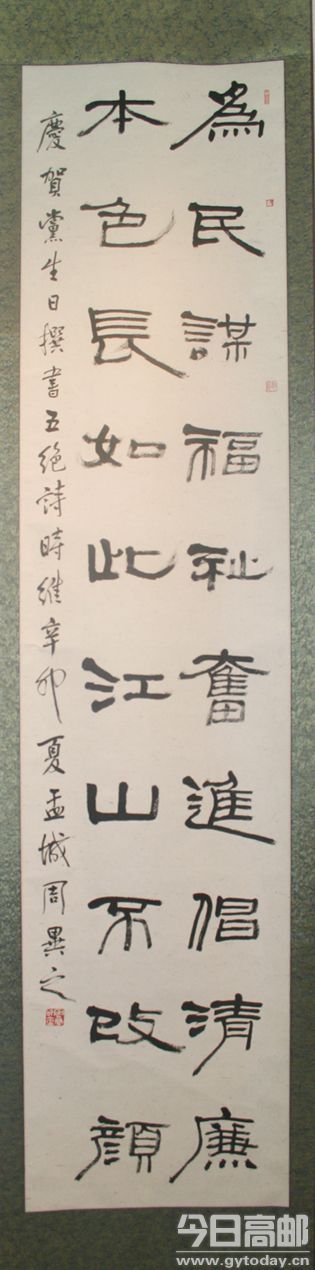 為民謀福祉奮進倡清廉
本色長如此江山不改顏
慶賀黨生日撰書五絕詩時維辛卯夏盂城周異之
今日高邮
www.gytoday.cn